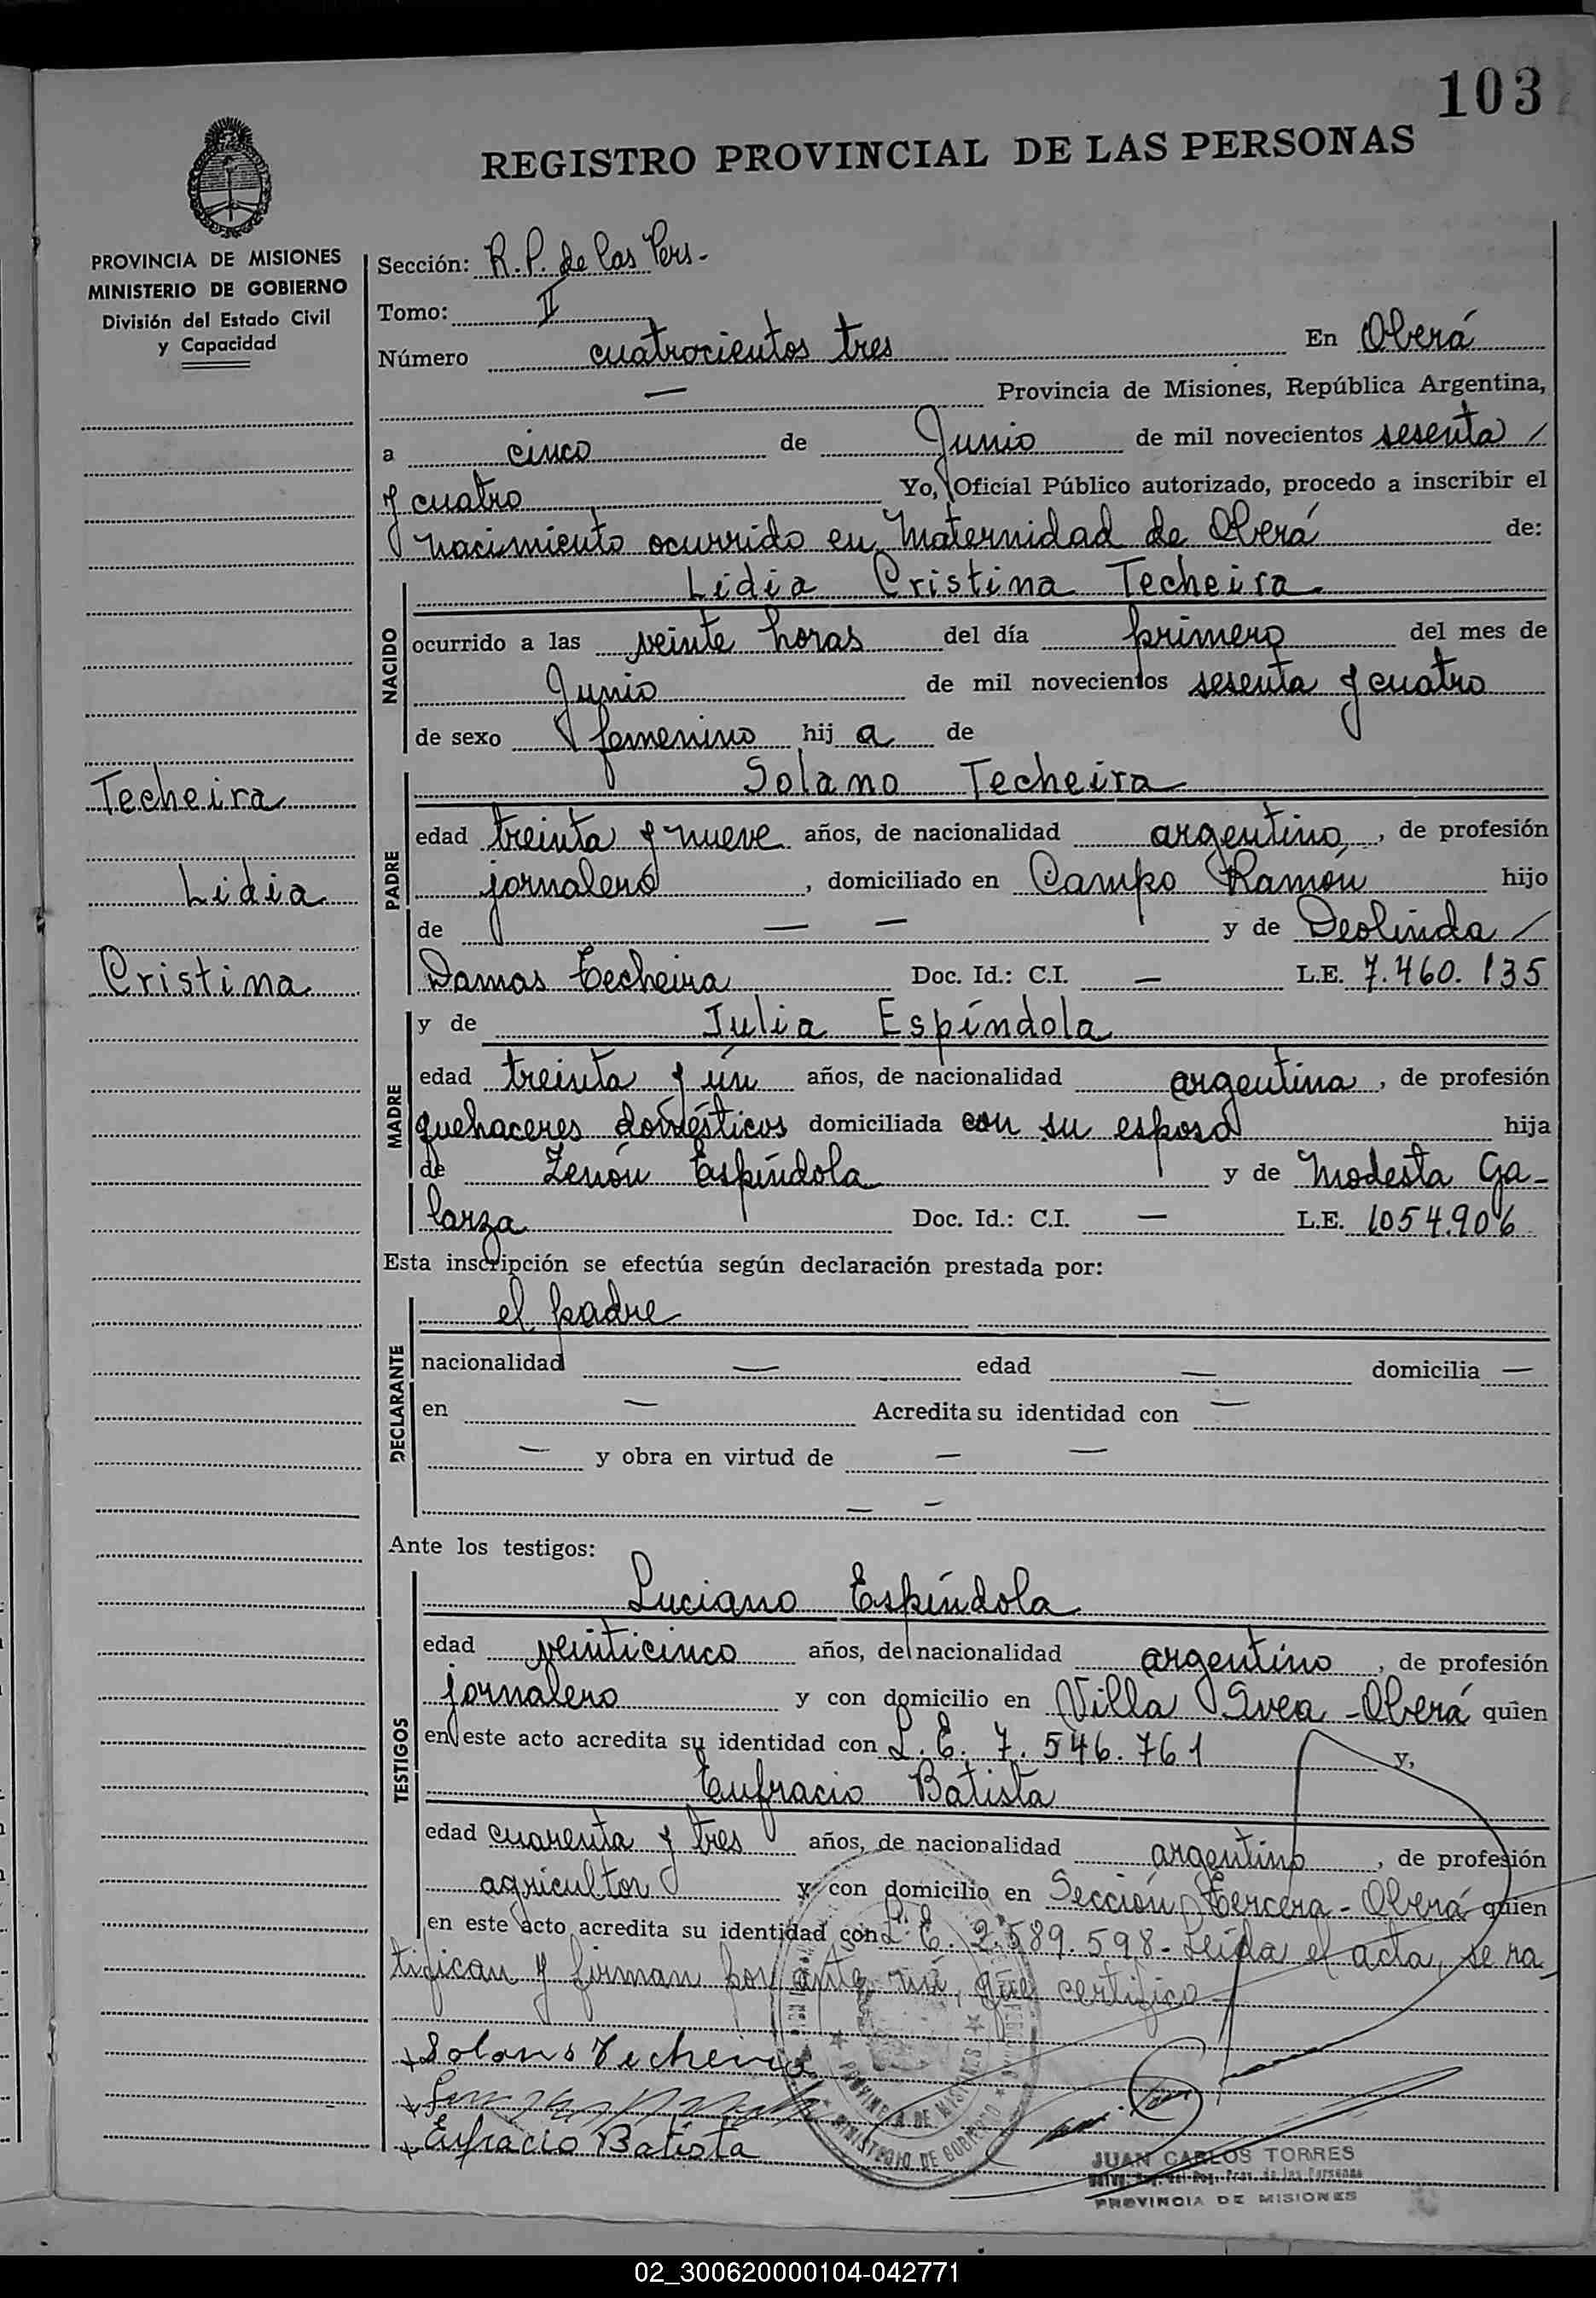 103
REGISTRO PROVINCIAL DE LAS PERSONAS
PROVINCIA DE MISIONES
MINISTERIO DE GOBIERNO
División del Estado Civil
y Capacidad
Sección: R.P. de las Pers.
Tomo: II
Número cuatrocientos tres En Oberá
— Provincia de Misiones, República Argentina,
a cinco de Junio de mil novecientos sesenta /
y cuatro Yo, Oficial Público autorizado, procedo a inscribir el
nacimiento ocurrido en Maternidad de Oberá de:
Lidia Cristina Techeira
NACIDO
ocurrido a las veinte horas del día primero del mes de
Junio de mil novecientos sesenta y cuatro
de sexo femenino hij a de
Techeira
Lidia
Cristina
Solano Techeira
PADRE
edad treinta y nueve años, de nacionalidad argentino, de profesión
jornalero, domiciliado en Campo Ramón hijo
de — — y de Deolinda /
Damas Techeira Doc. Id.: C.I. — L.E. 7.460.135
MADRE
y de Julia Espíndola
edad treinta y ún años, de nacionalidad argentina, de profesión
quehaceres domésticos domiciliada con su esposo hija
de Zenón Espíndola y de Modesta Ga-
larza Doc. Id.: C.I. — L.E. 1054.906
Esta inscripción se efectúa según declaración prestada por:
el padre
DECLARANTE
nacionalidad — edad — domicilia —
en — Acredita su identidad con —
— y obra en virtud de — —
— —
Ante los testigos:
Luciano Espíndola
TESTIGOS
edad veinticinco años, de nacionalidad argentino, de profesión
jornalero y con domicilio en Villa Svea - Oberá quien
en este acto acredita su identidad con L.E. 7.546.761 y,
Eufracio Batista
edad cuarenta y tres años, de nacionalidad argentino, de profesión
agricultor y con domicilio en Sección Tercera - Oberá quien
en este acto acredita su identidad con L.E. 2.589.598 - Leida el acta, se ra-
tifican y firman por ante mí, que certifico
Solano Techeira
Eufracio Batista
PROVINCIA DE MISIONES
MINISTERIO DE GOBIERNO
JUAN CARLOS TORRES
PROVINCIA DE MISIONES
02_300620000104-042771